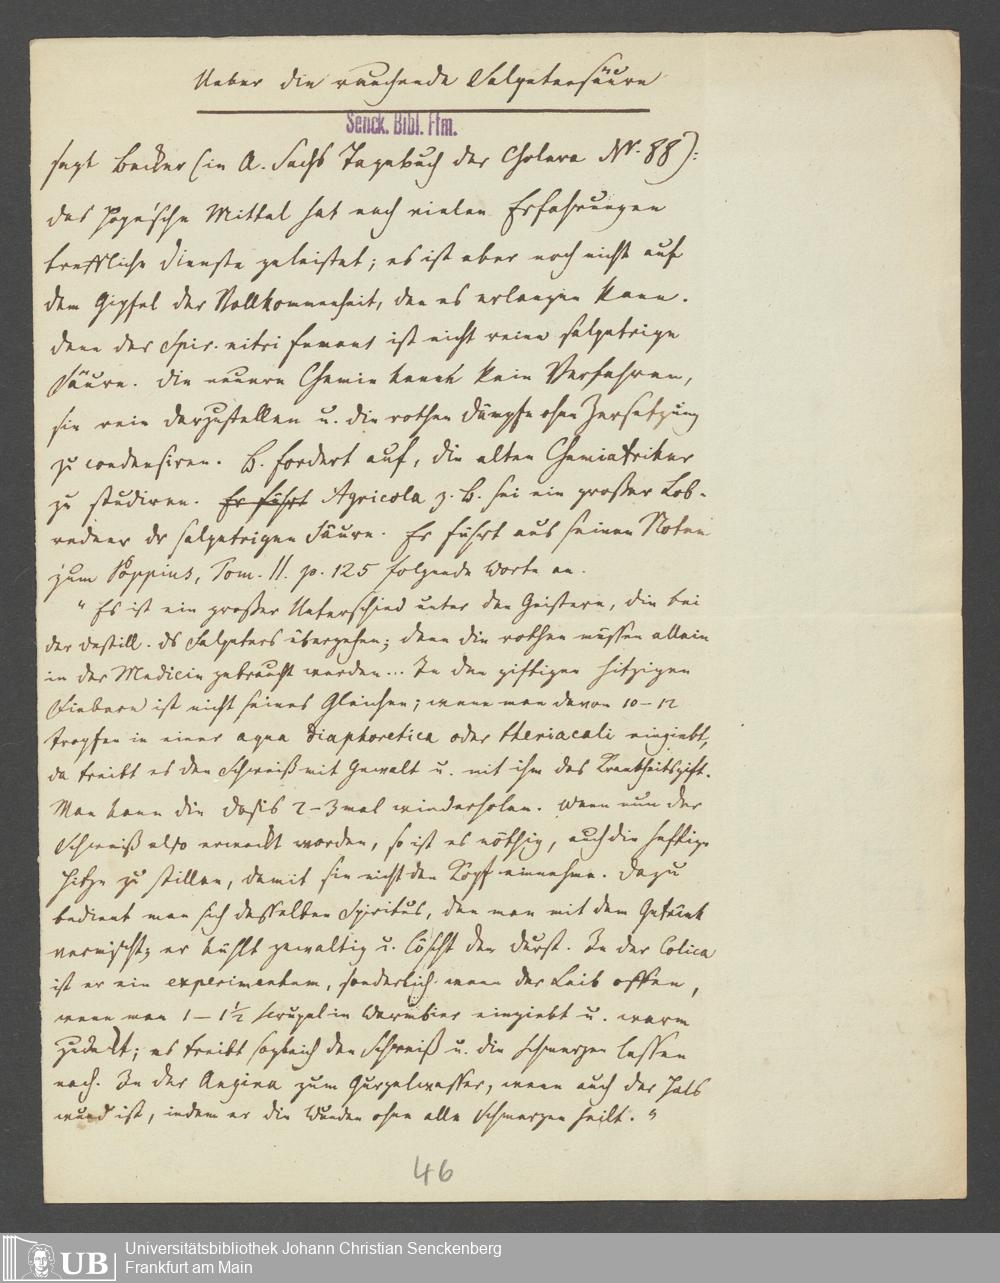 Ueber die rauchende Salpetersäure
Senck. Bibl. Ffm.
sagt Becker (in A. Sachs Tagebuch der Cholera Nr. 88):
das Hope'sche Mittel hat nach vielen Erfahrungen
treffliche Dienste geleistet; es ist aber noch nicht auf
dem Gipfel der Vollkommenheit, den es erlangen kann.
denn der Spir. nitri fumans ist nicht reine salpetrige
Säure. die neuere Chemie kennt kein Verfahren,
sie rein darzustellen u. die rothen Dämpfe ohne Zersetzung
zu condensiren. B. fordert auf, die alten Chemiatriker
zu studiren. Er führt Agricola z. B. sei ein großer Lob-
redner dr salpetrigen Säure. Er führt aus seinen Noten
zum Poppius, Tom. II. p. 125 folgende Worte an.
"Es ist ein großer Unterschied unter den Geistern, die bei
der destill. ds Salpeters übergehen; denn die rothen müssen allein
in der Medicin gebraucht werden... In den giftigen hitzigen
Fiebern ist nicht seines Gleichen; wenn man davon 10–12
tropfen in einer aqua diaphoretica oder theriacali eingiebt,
da treibt es den Schweiß mit Gewalt u. mit ihm das Krankheitsgift.
Man kann die dosis 2–3mal wiederholen. Wenn nun der
Schweiß also erweckt worden, so ist es nöthig, auch die heftige
Hitze zu stillen, damit sie nicht den Kopf einnehme. Dazu
bedient man sich desselben Spiritus, den man mit dem Getränk
vermischt; er kühlt gewaltig u. löscht den Durst. In der Colica
ist er ein experimentum, sonderlich wenn der Leib offen,
wenn man 1–1½ scrupel in Warmbier eingiebt u. warm
zudeckt; es treibt sogleich den Schweiß u. die Schmerzen lassen
nach. In der Angina zum Gurgelwasser, wenn auch der Hals
wund ist, indem er die Wunden ohne alle Schmerzen heilt."
46
UB
Universitätsbibliothek Johann Christian Senckenberg
Frankfurt am Main